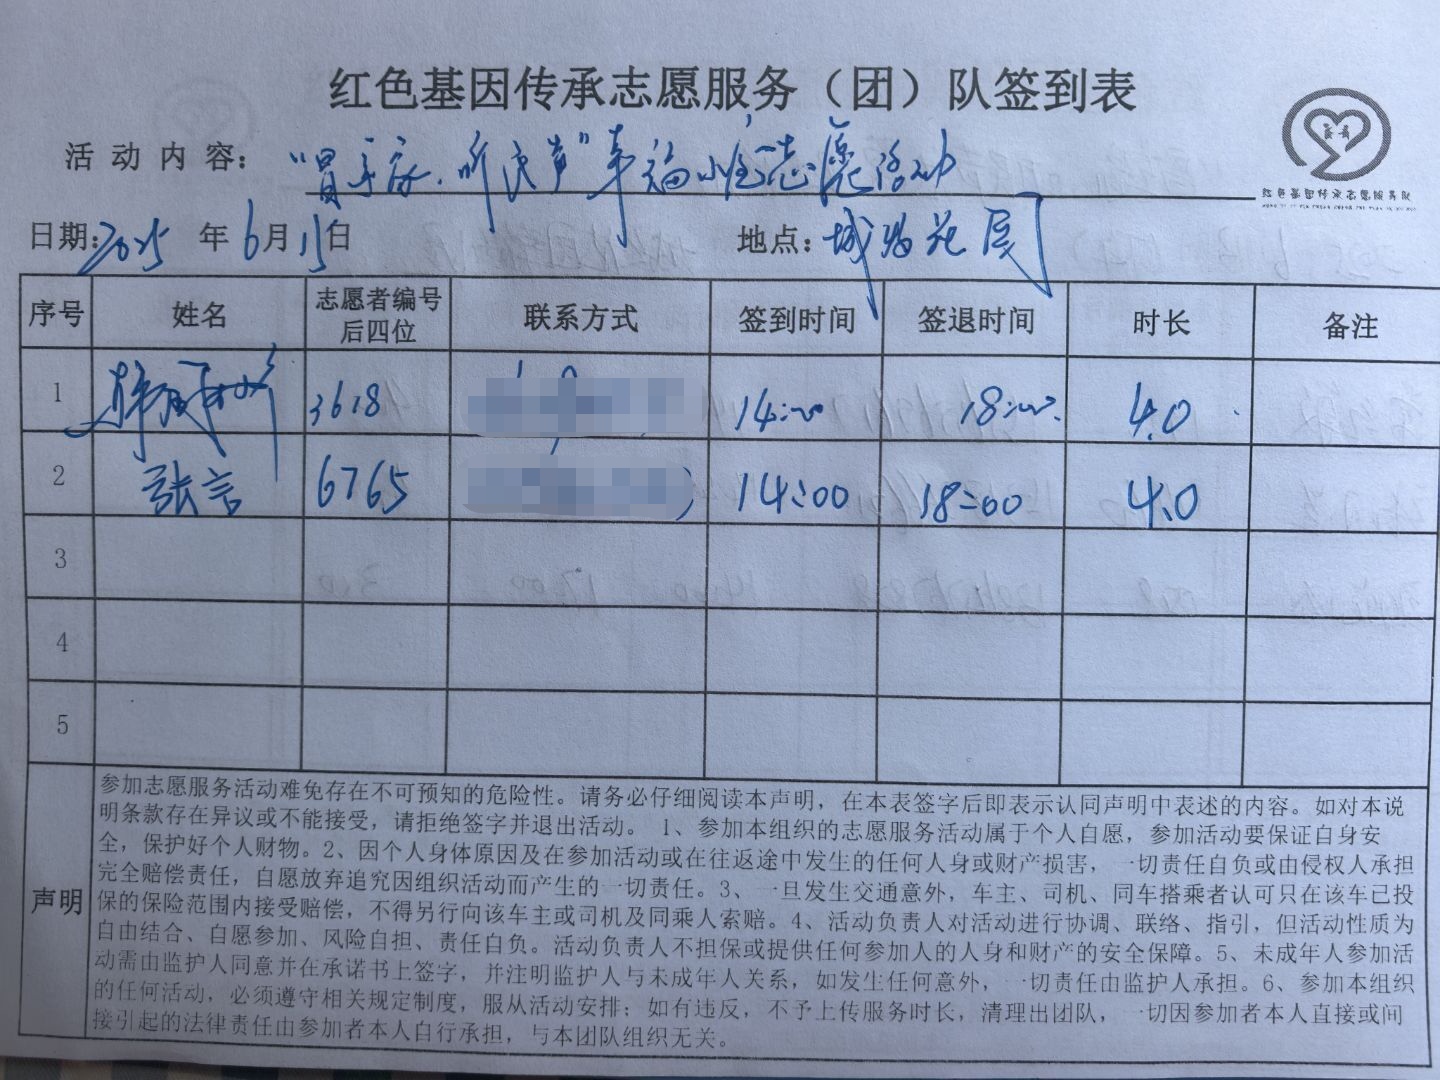 红色基因传承志愿服务（团）队签到表
活动内容：“冒严寒、听民声”幸福小组志愿活动
红色基因传承志愿服务队
日期：2025年6月15日 地点：城花园
序号 姓名 志愿者编号后四位 联系方式 签到时间 签退时间 时长 备注
1 3618 14:00 18:00 4.0
2 张言 6765 14:00 18:00 4.0
3
4
5
声明
参加志愿服务活动难免存在不可预知的危险性。请务必仔细阅读本声明，在本表签字后即表示认同声明中表述的内容。如对本说
明条款存在异议或不能接受，请拒绝签字并退出活动。 1、参加本组织的志愿服务活动属于个人自愿，参加活动要保证自身安
全，保护好个人财物。2、因个人身体原因及在参加活动或在往返途中发生的任何人身或财产损害，一切责任自负或由侵权人承担
完全赔偿责任，自愿放弃追究因组织活动而产生的一切责任。3、一旦发生交通意外，车主、司机、同车搭乘者认可只在该车已投
保的保险范围内接受赔偿，不得另行向该车主或司机及同乘人索赔。4、活动负责人对活动进行协调、联络、指引，但活动性质为
自由结合、自愿参加、风险自担、责任自负。活动负责人不担保或提供任何参加人的人身和财产的安全保障。5、未成年人参加活
动需由监护人同意并在承诺书上签字，并注明监护人与未成年人关系，如发生任何意外，一切责任由监护人承担。6、参加本组织
的任何活动，必须遵守相关规定制度，服从活动安排；如有违反，不予上传服务时长，清理出团队，一切因参加者本人直接或间
接引起的法律责任由参加者本人自行承担，与本团队组织无关。